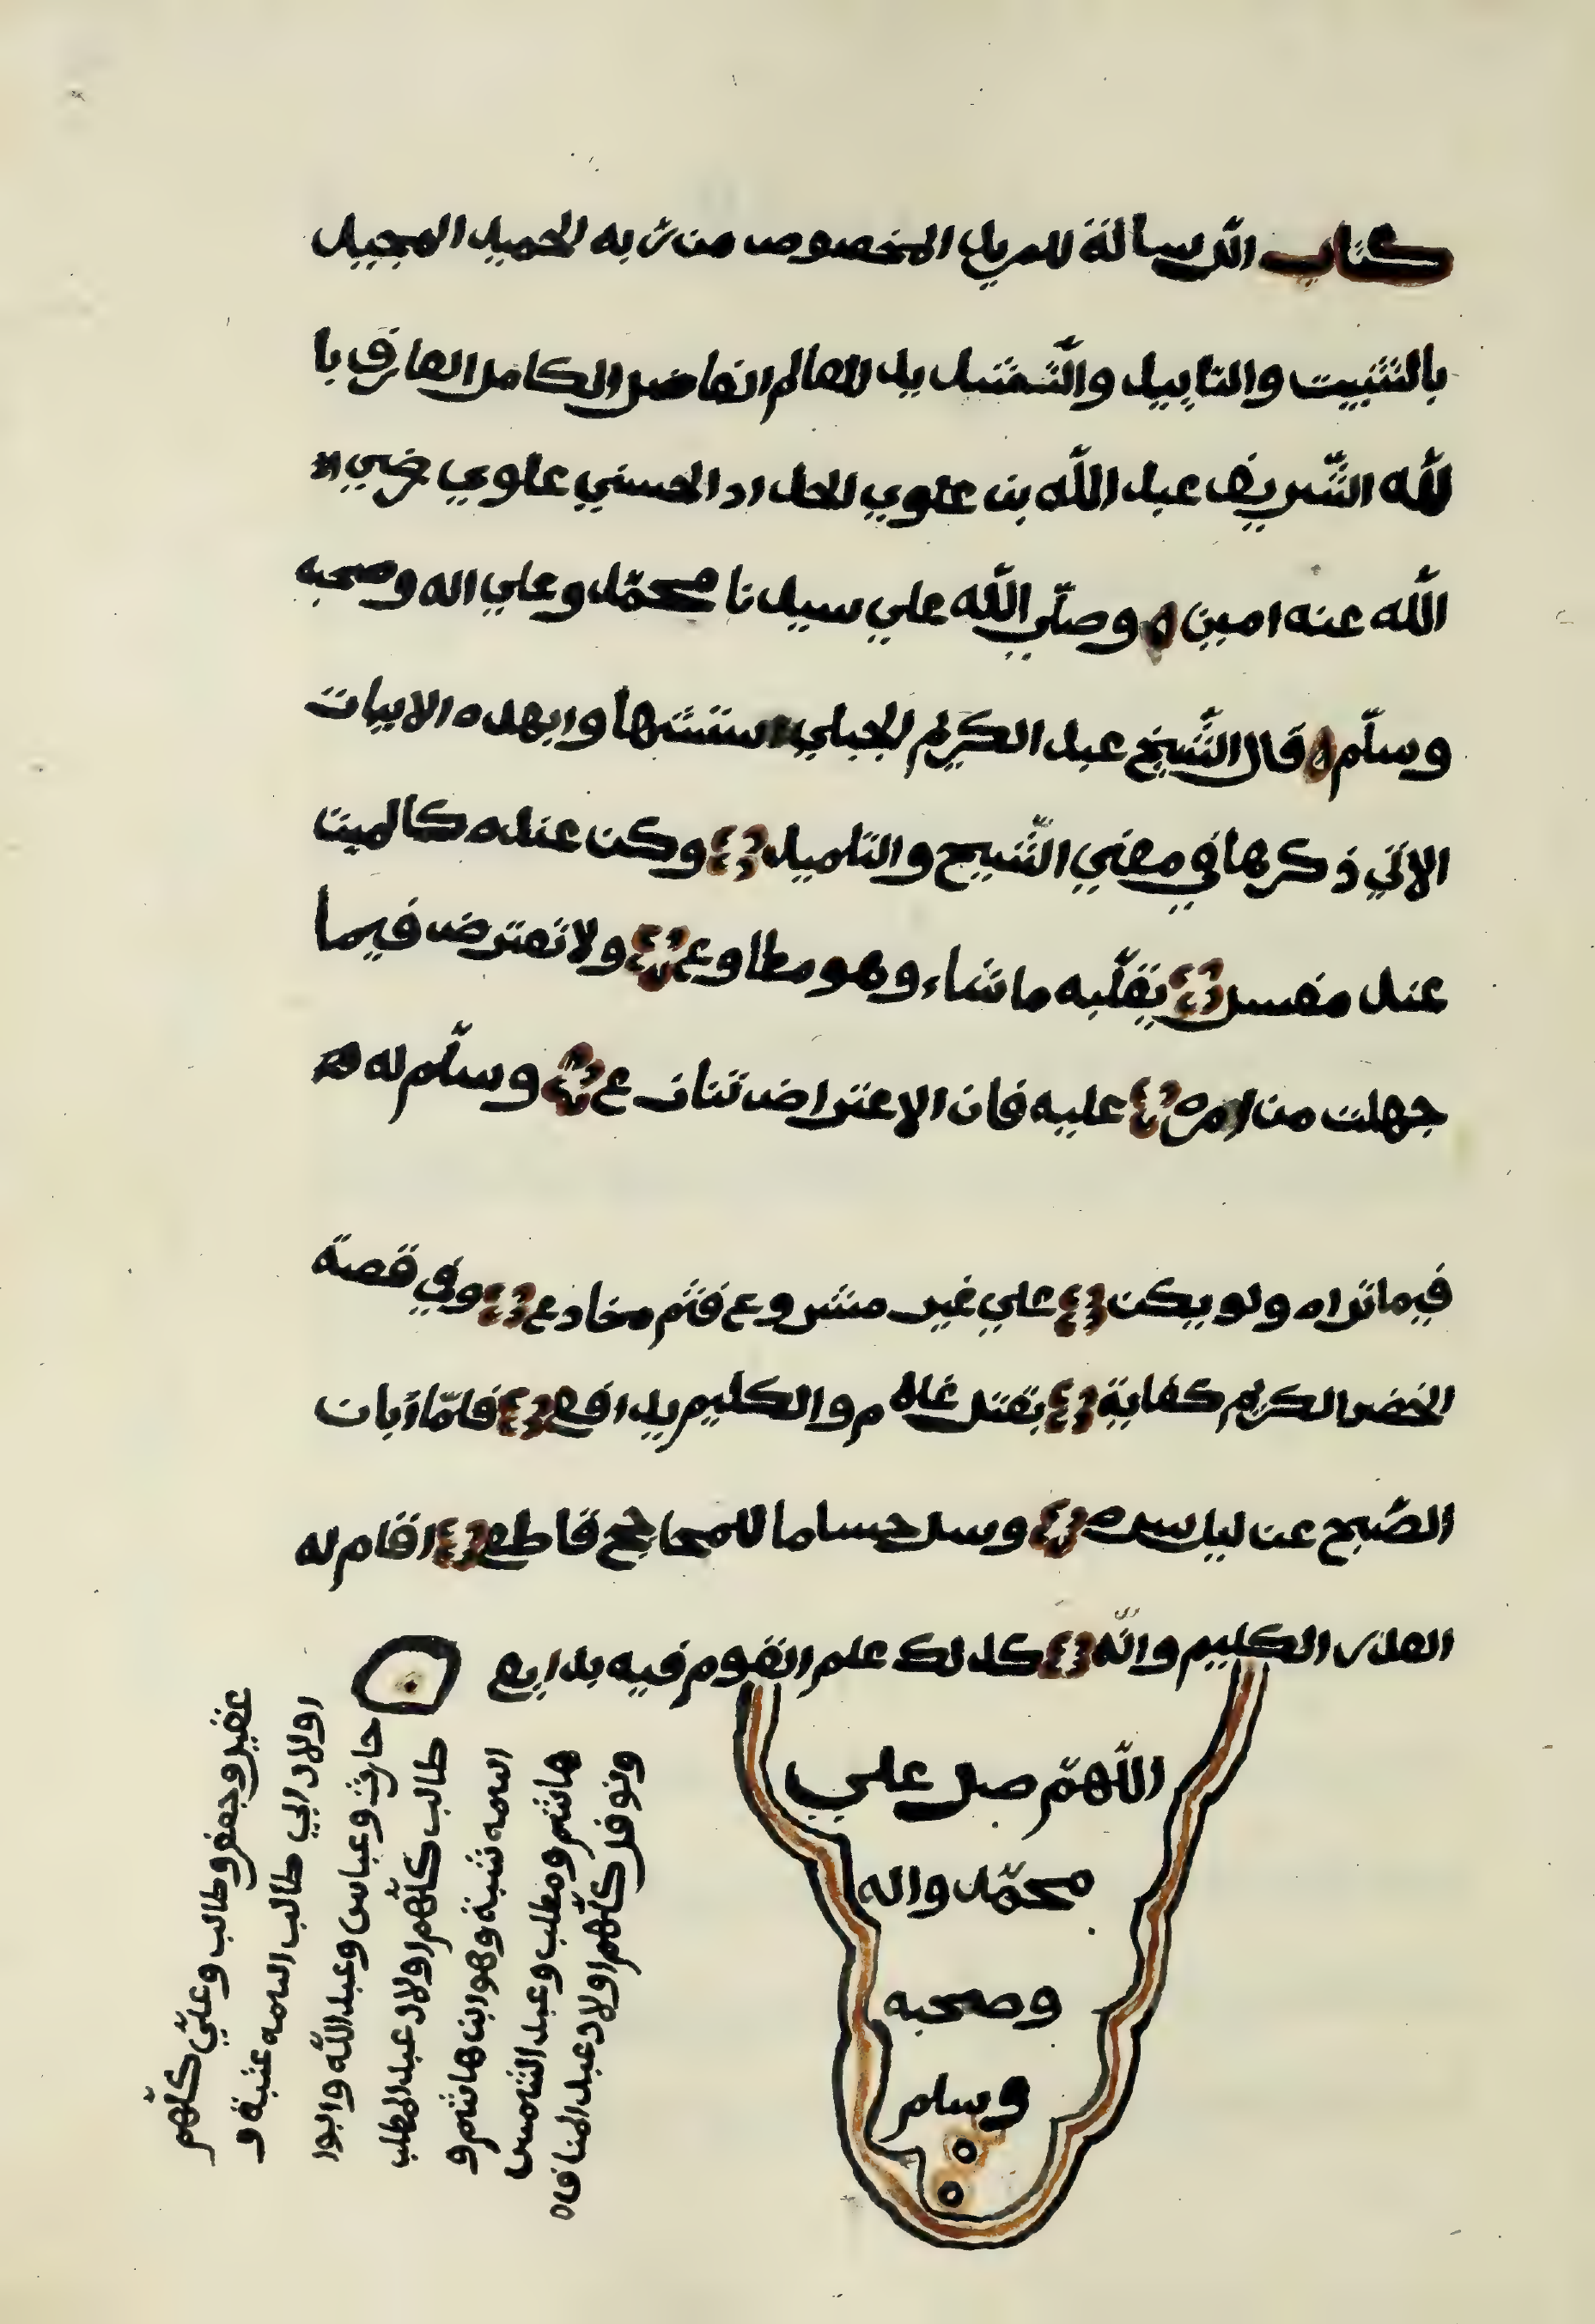 كتاب الرسالة للمريد المخصوص من ربه الحميد المجيد
بالتثبيت والتاييد والتشديد للعالم الفاضل الكامل العارف با
لله الشريف عبد الله بن علوي الحداد الحسني علوي رضي
الله عنه امين ه وصلي الله علي سيدنا محمد وعلي اله وصحبه
وسلم ه قال الشيخ عبد الكريم الجيلي استشهدوا بهده الابيات
الاتي ذكرها في معني الشيخ والتلميد وكن عنده كالميت
عند مغسل يقلبه ماشاء وهو مطاوع ولا تعترض فيما
جهلت من امره عليه فان الاعتراض تنازع وسلم له
فيما تراه ولو يكن علي غير مشروع فثم مخادع وفي قصة
الخضر الكريم كفاية بقتل غلام والكليم يدافع فلما ابان
الصبح عن ليل سره وسل حساما للمحاجج قاطع اقام له
العذر الكليم وانه كدلك علم القوم فيه بدايع
اللهم صل علي
محمد واله
وصحبه
وسلم
ونوفل كلهم اولاد عبد المناف ه
هاشم ومطلب وعبد الشمس
اسمه شبة وهو ابن هاشم و
طالب كلهم اولاد عبد المطلب
حارث وعباس وعبد الله وابوا
اولاد ابي طالب اسمه عتبة و
عقيل وجعفر وطالب وعلي كلهم